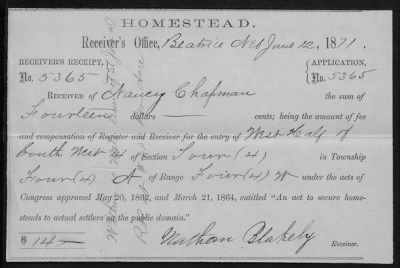 HOMESTEAD.
Receiver's Office, Beatrice Neb June 12, 1871.
RECEIVER'S RECEIPT, No. 5365
APPLICATION, No. 5365
RECEIVED OF Nancy Chapman the sum of
Fourteen dollars — cents; being the amount of fee
and compensation of Register and Receiver for the entry of West Half of
South West 4 of Section Four (4) in Township
Four (4) N of Range Four (4) W under the acts of
Congress approved May 20, 1862, and March 21, 1864, entitled "An act to secure home-
steads to actual settlers on the public domain."
$ 14
Nathan Blakely Receiver.